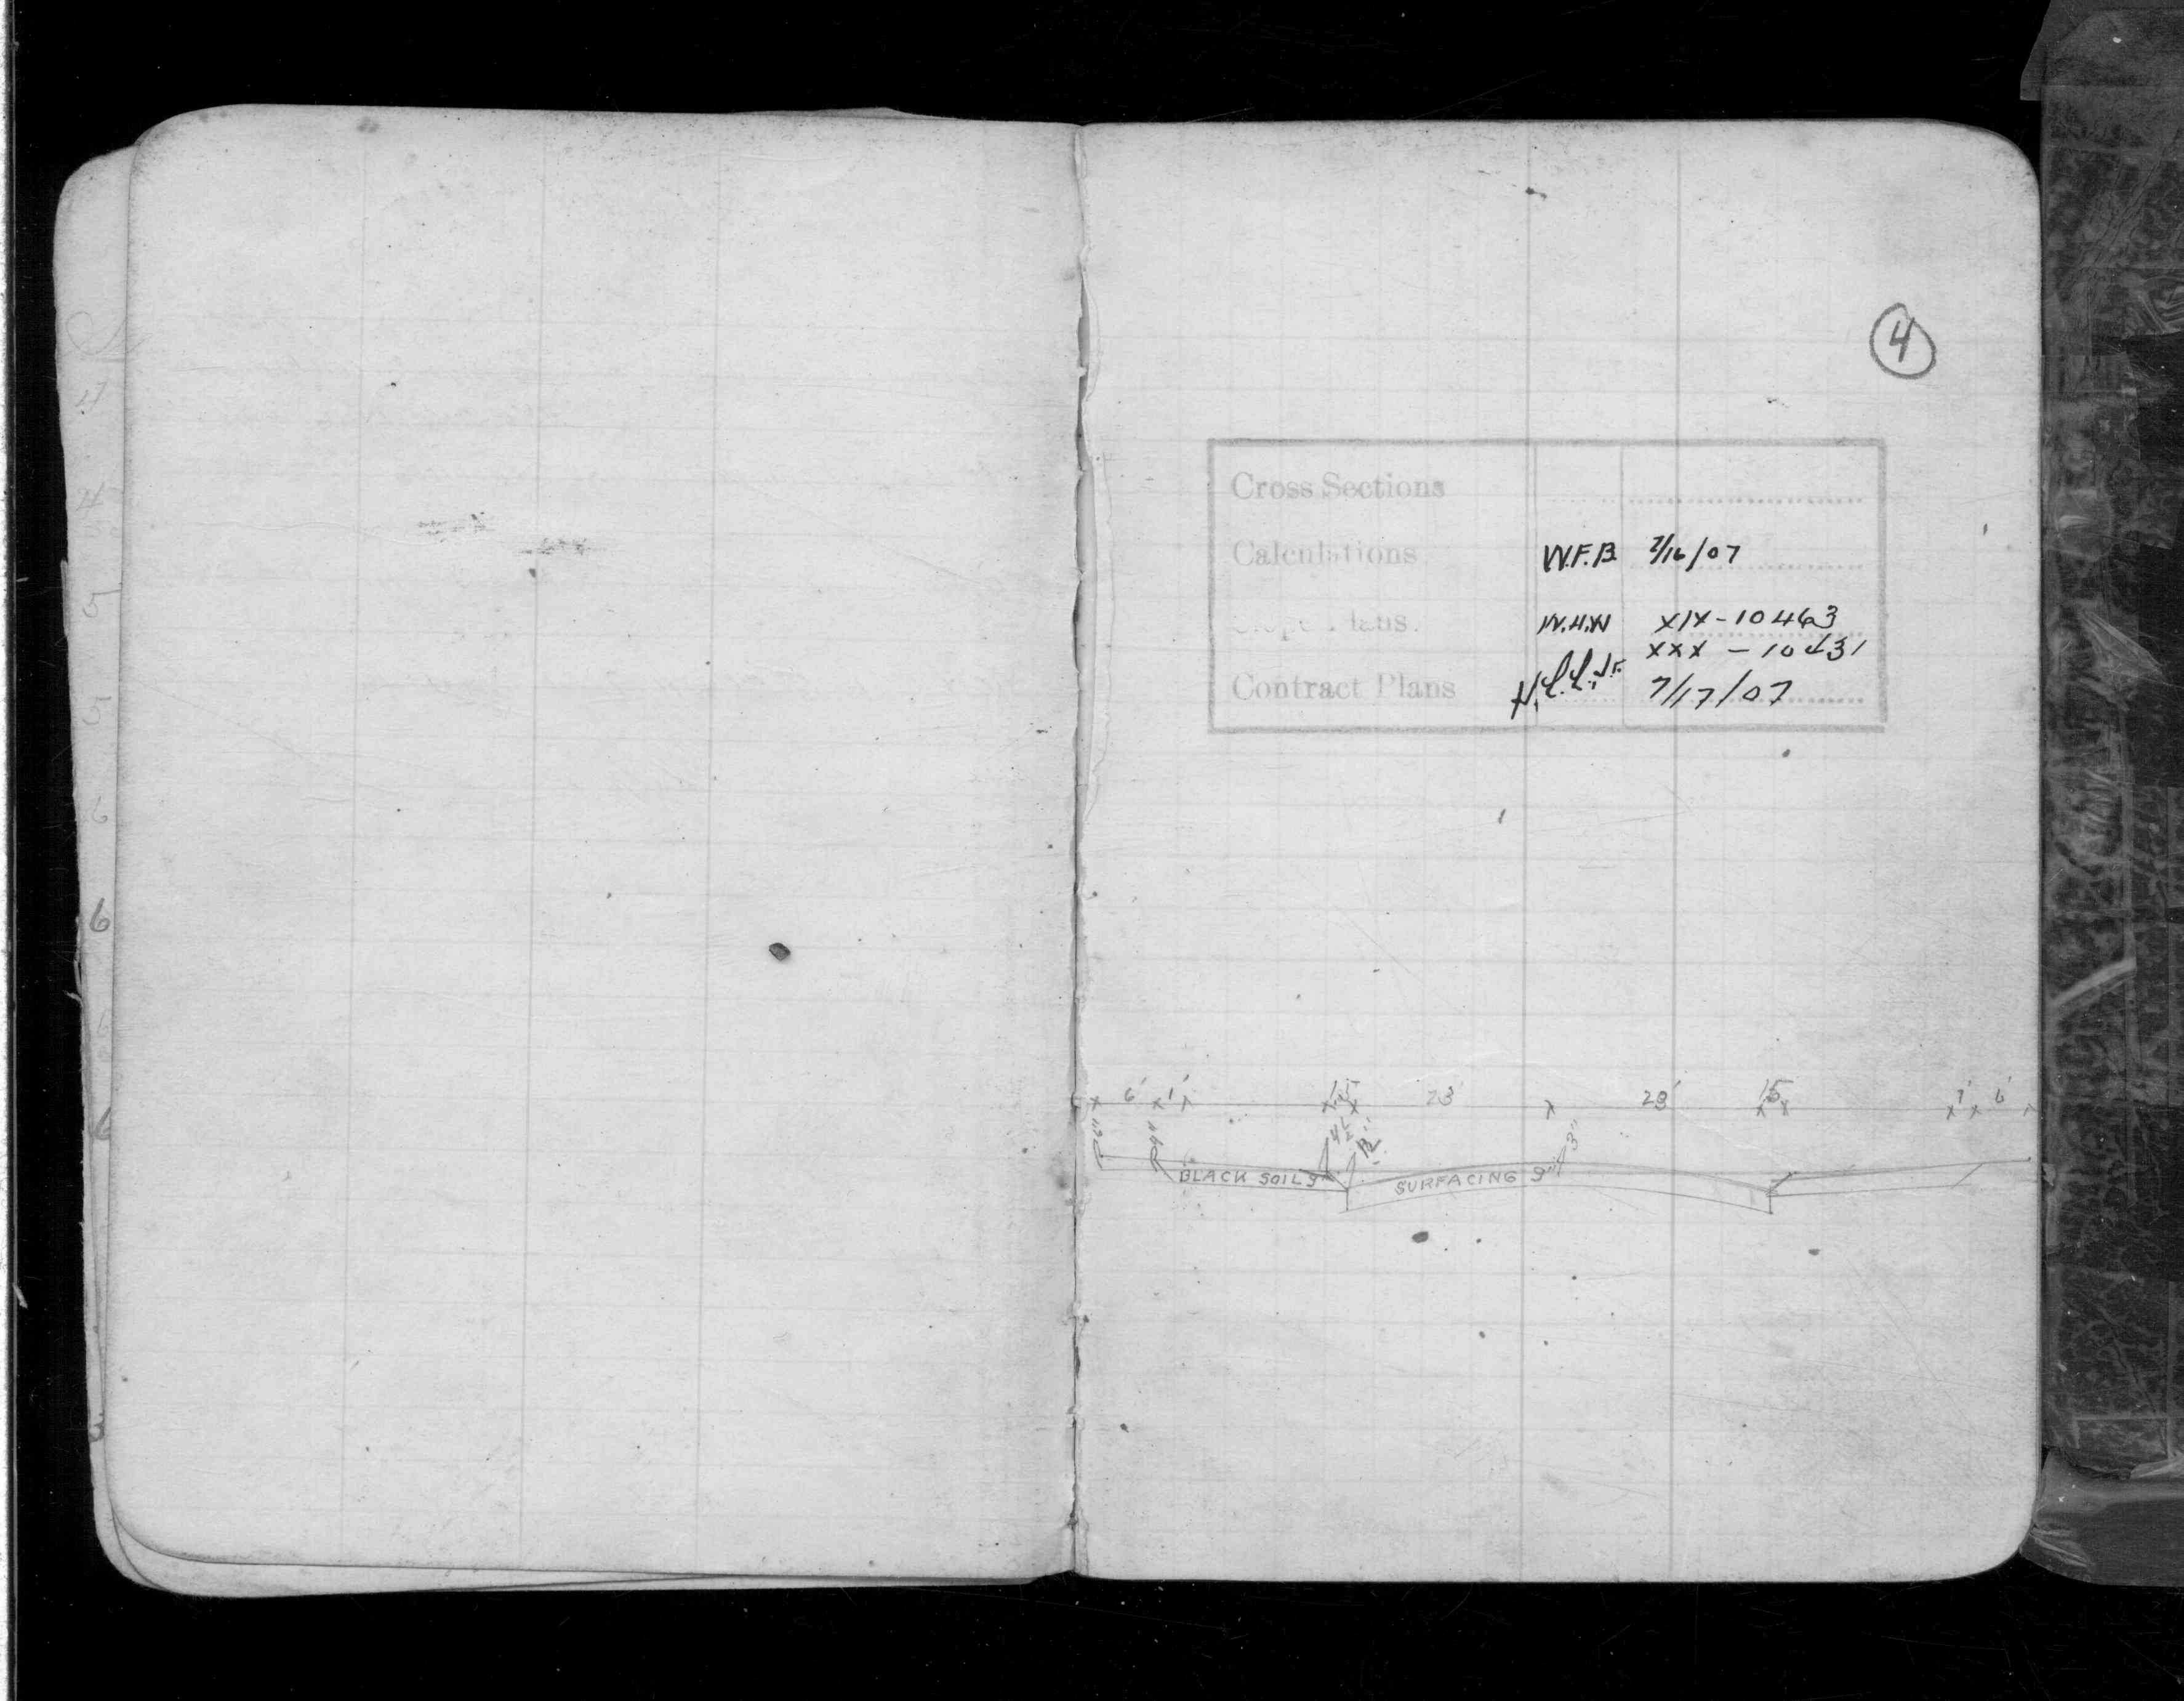 4
Cross Sections
Calculations W.F.B 7/16/07
Plans. W.H.W XIX-10463
XXX - 10431
Contract Plans 7/17/07
6' 1' 23' 28' 15 1' 6'
12" 3"
BLACK SOIL 9" SURFACING 9"
4
4
5
5
6
6
6
6
3